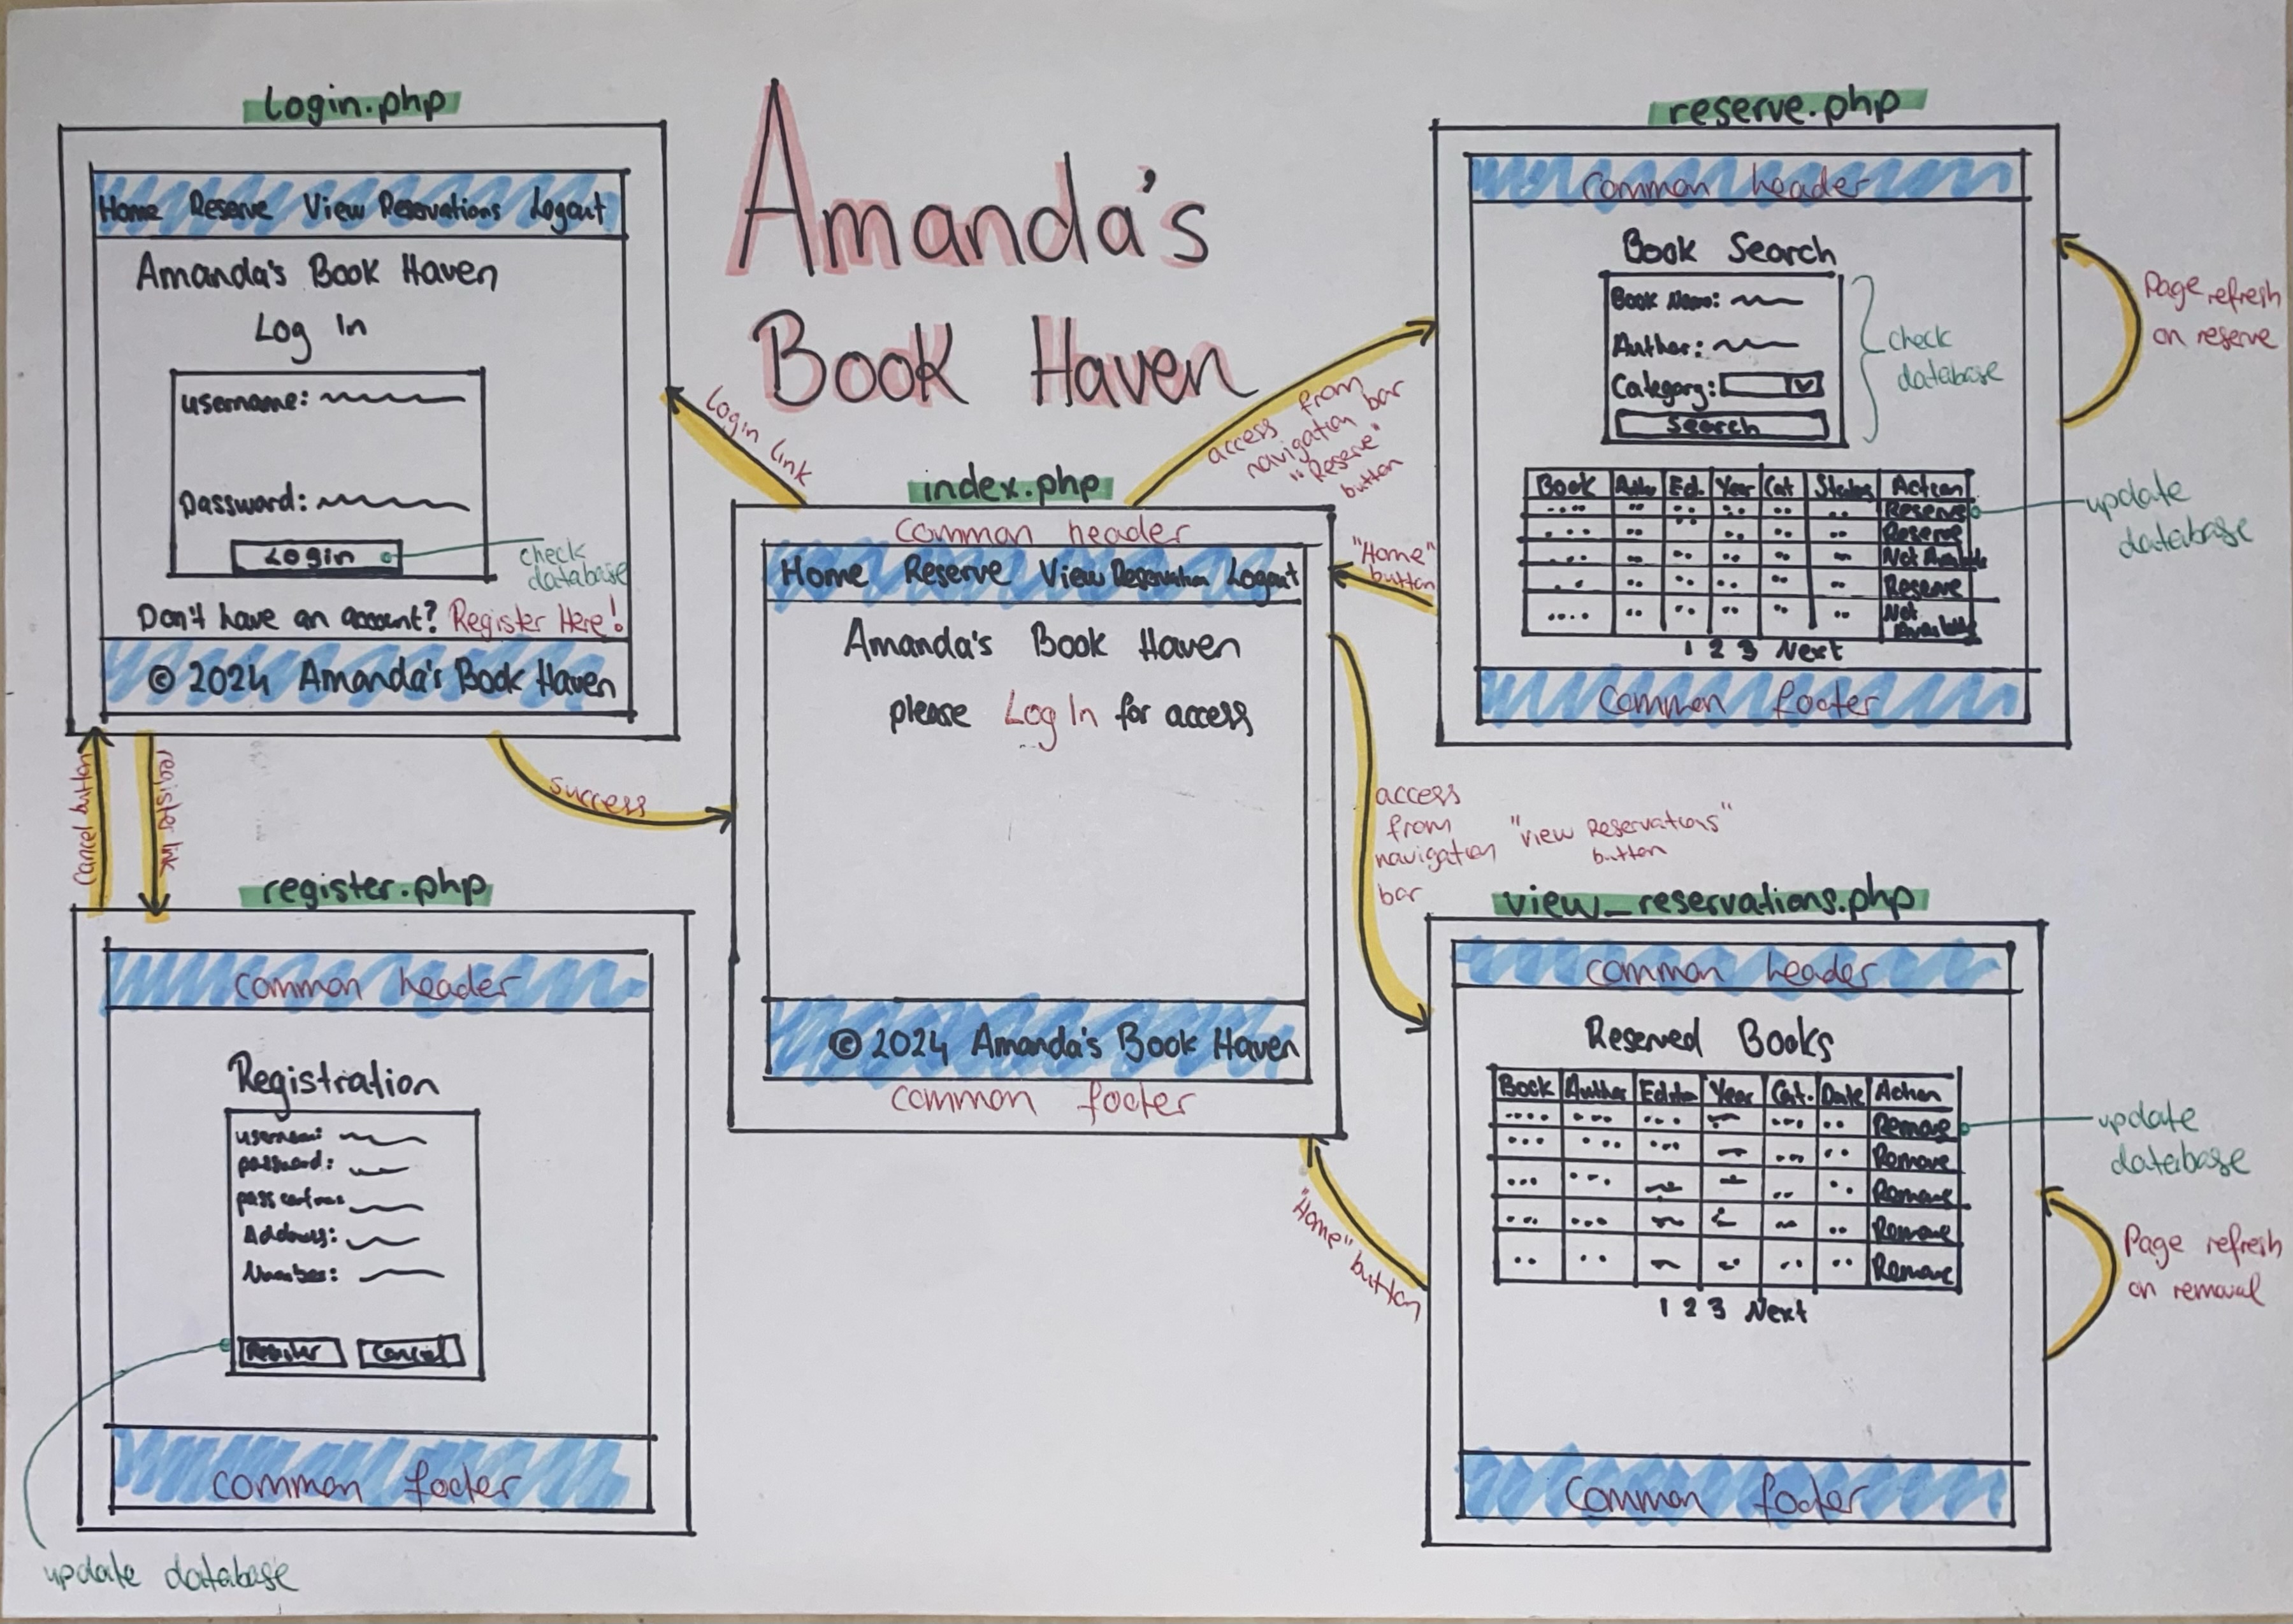 Amanda's
Book Haven
login.php
Home Reserve View Reservations Logout
Amanda's Book Haven
Log In
username:
Password:
Login
check
database
Don't have an account? Register Here!
© 2024 Amanda's Book Haven
Cancel button
register link
success
login link
register.php
common header
Registration
username:
password:
Address:
Number:
Register Cancel
common footer
update database
index.php
common header
Home Reserve View Reservation Logout
Amanda's Book Haven
please Log In for access
© 2024 Amanda's Book Haven
common footer
access from
navigation bar
"Reserve"
button
"Home"
button
access
from
navigation
bar
"view Reservations"
button
"Home" button
reserve.php
common header
Book Search
Book Name:
Author:
Category:
Search
check
database
Book Ed. Year Cat Status Action
Reserve
Reserve
Not Available
Reserve
Not
Available
1 2 3 Next
common footer
Page refresh
on reserve
update
database
view_reservations.php
common header
Reserved Books
Book Author Year Cat. Date Action
Remove
Remove
Remove
Remove
Remove
1 2 3 Next
common footer
update
database
Page refresh
on removal